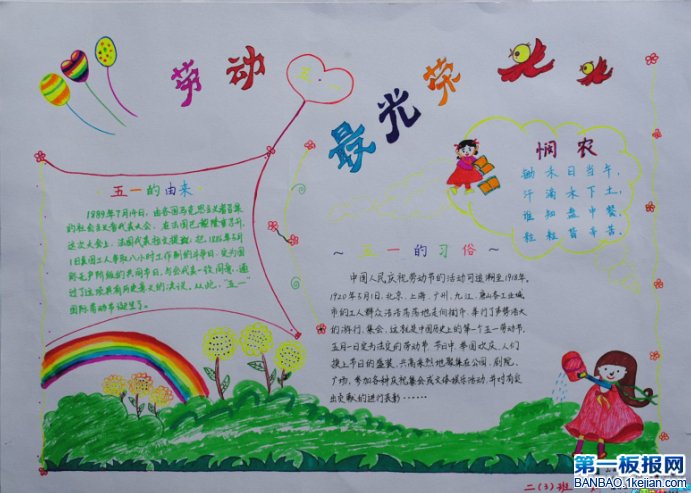 劳动
最光荣
五一的由来
1889年7月14日,由各国马克思主义者召集
的社会主义者代表大会,在法国巴黎隆重召开。
这次大会上,法国代表拉文提议:把1886年5月
1日美国工人争取八小时工作制的斗争日,定为国
际无产阶级的共同节日。与会代表一致同意,通
过了这项具有历史意义的决议。从此,“五一”
国际劳动节诞生了。
悯农
锄禾日当午,
汗滴禾下土,
谁知盘中餐
粒粒皆辛苦。
~五一的习俗~
中国人民庆祝劳动节的活动可追溯至1918年。
1920年5月1日,北京、上海、广州、九江、唐山各工业城
市的工人群众浩浩荡荡地走向街市、举行了声势浩大
的游行、集会,这就是中国历史上的第一个五一劳动节。
五月一日定为法定的劳动节,节日中,举国欢庆,人们
换上节日的盛装,兴高采烈地聚集在公园、剧院、
广场,参加各种庆祝集会或文体娱乐活动,并对有突
出贡献的进行表彰······
二(3)班
第一板报网
BANBAO.1kejian.com